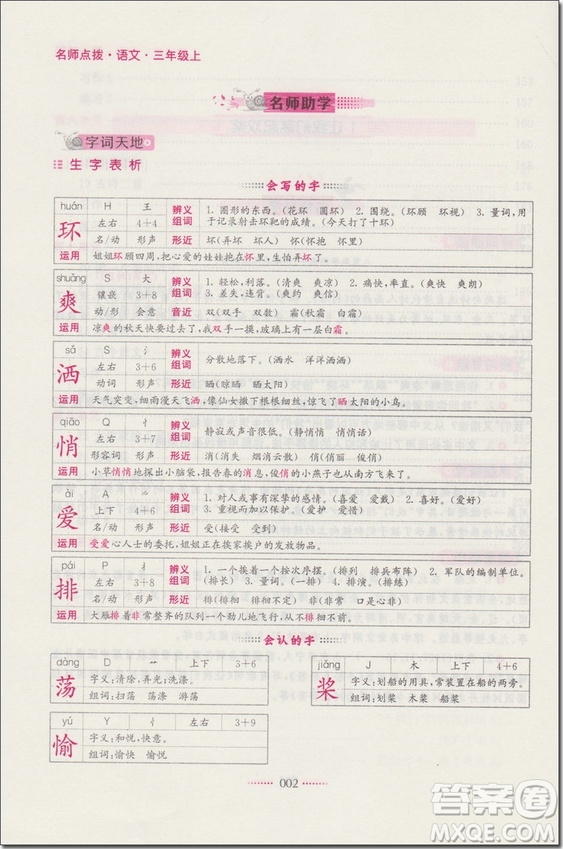 名师点拨·语文·三年级上
名师助学
字词天地
生字表析
会写的字
huán H 王 辨义组词 1. 圆形的东西。(花环 圆环) 2. 围绕。(环顾 环视) 3. 量词,用
环 左右 4+4 于记录射击环靶的成绩。(今天打了十环)
名/动 形声 形近 坏(弄坏 坏人) 怀(怀抱 怀里)
运用 姐姐环顾四周,把心爱的娃娃抱在怀里,生怕弄坏了。
shuǎng S 大 辨义组词 1. 轻松,利落。(清爽 爽凉) 2. 痛快,率直。(爽快 爽朗)
爽 镶嵌 3+8 3. 差失,违背。(爽约 爽信)
动/形 会意 音近 双(双手 双数) 霜(霜叶 白霜)
运用 凉爽的秋天快要过去了,我双手一摸,玻璃上有一层白霜。
sǎ S 氵 辨义组词 分散地落下。(洒水 洋洋洒洒)
洒 左右 3+6
动词 形声 形近 晒(晾晒 晒太阳)
运用 天气突变,细雨漫天飞洒,像仙女撒下根根细丝,惊飞了晒太阳的小鸟。
qiāo Q 忄 辨义组词 静寂或声音很低。(静悄悄 悄悄话)
悄 左右 3+7
形容词 形声 形近 消(消失 烟消云散) 俏(俏丽 俊俏)
运用 小草悄悄地探出小脑袋,报告春的消息,俊俏的小燕子也从南方飞来了。
ài A 爫 辨义组词 1. 对人或事有深挚的感情。(喜爱 爱戴) 2. 喜好。(爱好)
爱 上下 4+6 3. 重视而加以保护。(爱护 爱惜)
名/动 形声 形近 受(接受 受到)
运用 受爱心人士的委托,姐姐正在挨家挨户的发放物品。
pái P 扌 辨义组词 1. 一个挨着一个按次序摆。(排列 排兵布阵) 2. 军队的编制单位。
排 左右 3+8 (排长) 3. 量词。(一排排) 4. 演练。(排练)
名/动 形声 形近 徘(徘徊 徘徊不前) 非(非常 口是心非)
运用 大雁排着非常整齐的队列一个劲儿地飞行,从不徘徊不前。
会认的字
dàng D 艹 上下 3+6 jiǎng J 木 上下 4+6
荡 字义:清除;弄光;洗涤。 桨 字义:划船的用具,常装置在船的两旁。
组词:扫荡 荡涤 游荡 组词:划桨 木桨 船桨
yú Y 忄 左右 3+9
愉 字义:和悦,快意。
组词:愉快 愉悦
002
答案圈
MXQE.COM